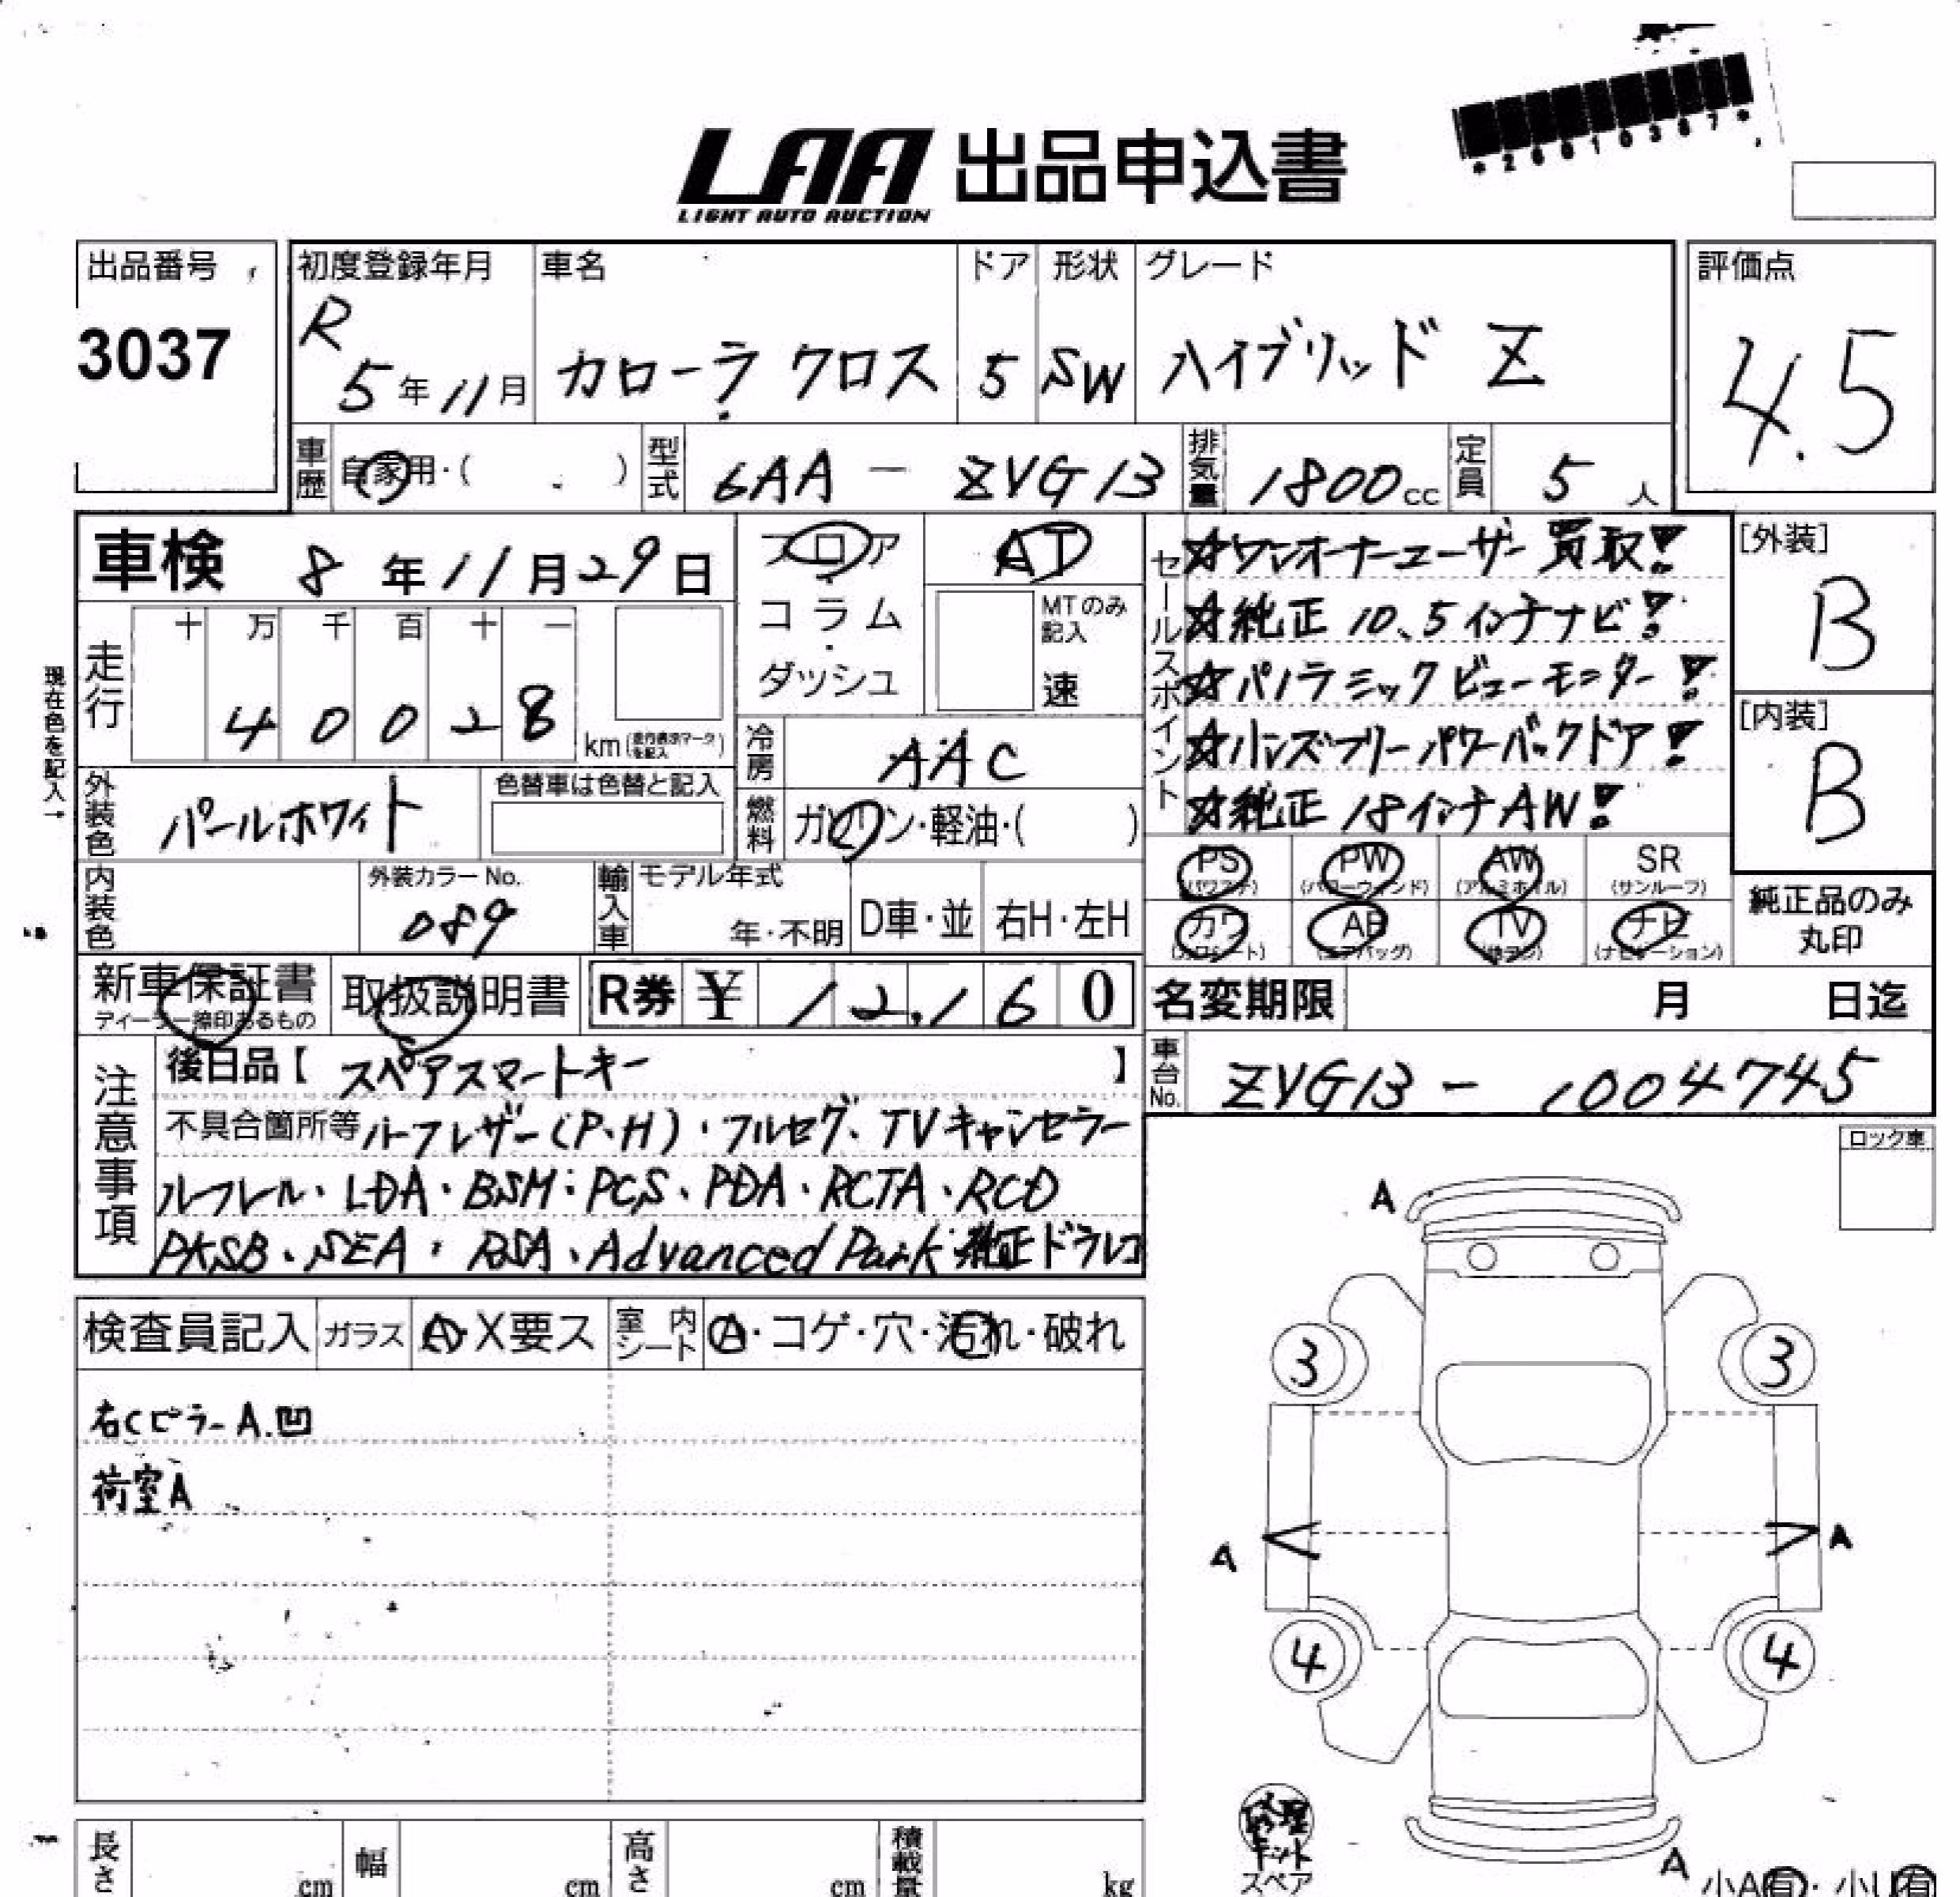 *26010387*
LAA 出品申込書
LIGHT AUTO AUCTION
出品番号
3037
初度登録年月
R
5年11月
車名
カローラ クロス
ドア
5
形状
SW
グレード
ハイブリッド Z
評価点
4.5
車歴
自家用・( )
型式
6AA - ZVG13
排気量
1800cc
定員
5人
車検 8年11月29日
フロア
コラム
ダッシュ
AT
MTのみ記入
速
セールスポイント
☆ワンオーナーユーザー買取!
☆純正10.5インチナビ!
☆パノラミックビューモニター!
☆ハンズフリーパワーバックドア!
☆純正18インチAW!
[外装]
B
[内装]
B
現在色を記入→
走行
十 万 千 百 十 一
4 0 0 2 8
km(走行表示マークを記入)
冷房
AAC
燃料
ガソリン・軽油・( )
外装色
パールホワイト
色替車は色替と記入
内装色
外装カラーNo.
089
輸入車
モデル年式
年・不明
D車・並
右H・左H
PS (パワステ)
PW (パワーウィンド)
AW (アルミホイル)
SR (サンルーフ)
カワ (カワシート)
AB (エアバッグ)
TV
ナビ (ナビゲーション)
純正品のみ
丸印
新車保証書
ディーラー捺印あるもの
取扱説明書
R券 ¥ 12,160
名変期限 月 日迄
車台No.
ZVG13 - 1004745
注意事項
後日品【 スペアスマートキー 】
不具合箇所等 ハーフレザー(P・H)・フルセグ・TVキャンセラー
ルーフレール・LDA・BSM・PCS・PDA・RCTA・RCD
PKSB・SEA・RSA・Advanced Park 純正ドラレコ
ロック車
検査員記入
ガラス
A・X要ス
室内シート
A・コゲ・穴・汚れ・破れ
右CピラーA.凹
荷室A
A
3
3
A
A
4
4
A
修理
キット
スペア
小A有・小U有
長さ cm
幅 cm
高さ cm
積載量 kg